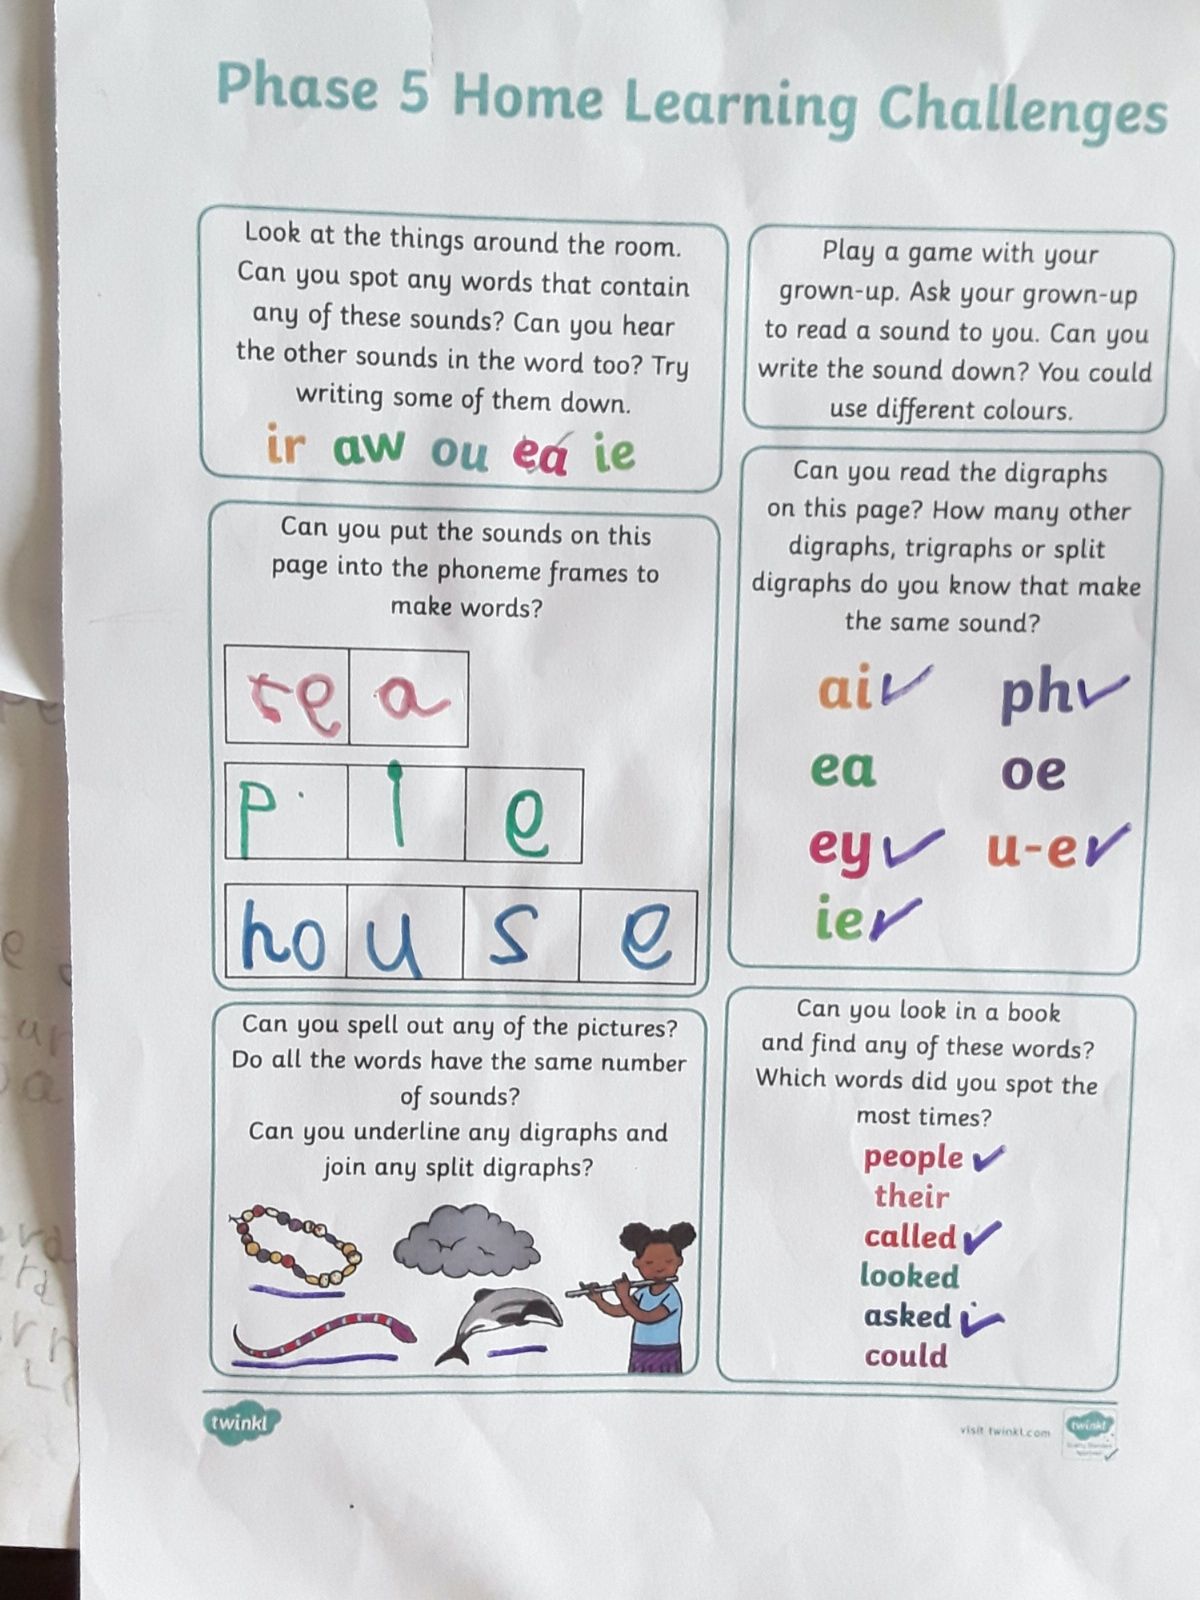 Phase 5 Home Learning Challenges
Look at the things around the room.
Can you spot any words that contain
any of these sounds? Can you hear
the other sounds in the word too? Try
writing some of them down.
ir aw ou ea ie
Play a game with your
grown-up. Ask your grown-up
to read a sound to you. Can you
write the sound down? You could
use different colours.
Can you put the sounds on this
page into the phoneme frames to
make words?
te a
p i e
ho u s e
Can you read the digraphs
on this page? How many other
digraphs, trigraphs or split
digraphs do you know that make
the same sound?
ai ph
ea oe
ey u-e
ie
Can you spell out any of the pictures?
Do all the words have the same number
of sounds?
Can you underline any digraphs and
join any split digraphs?
Can you look in a book
and find any of these words?
Which words did you spot the
most times?
people
their
called
looked
asked
could
twinkl
visit twinkl.com
twinkl